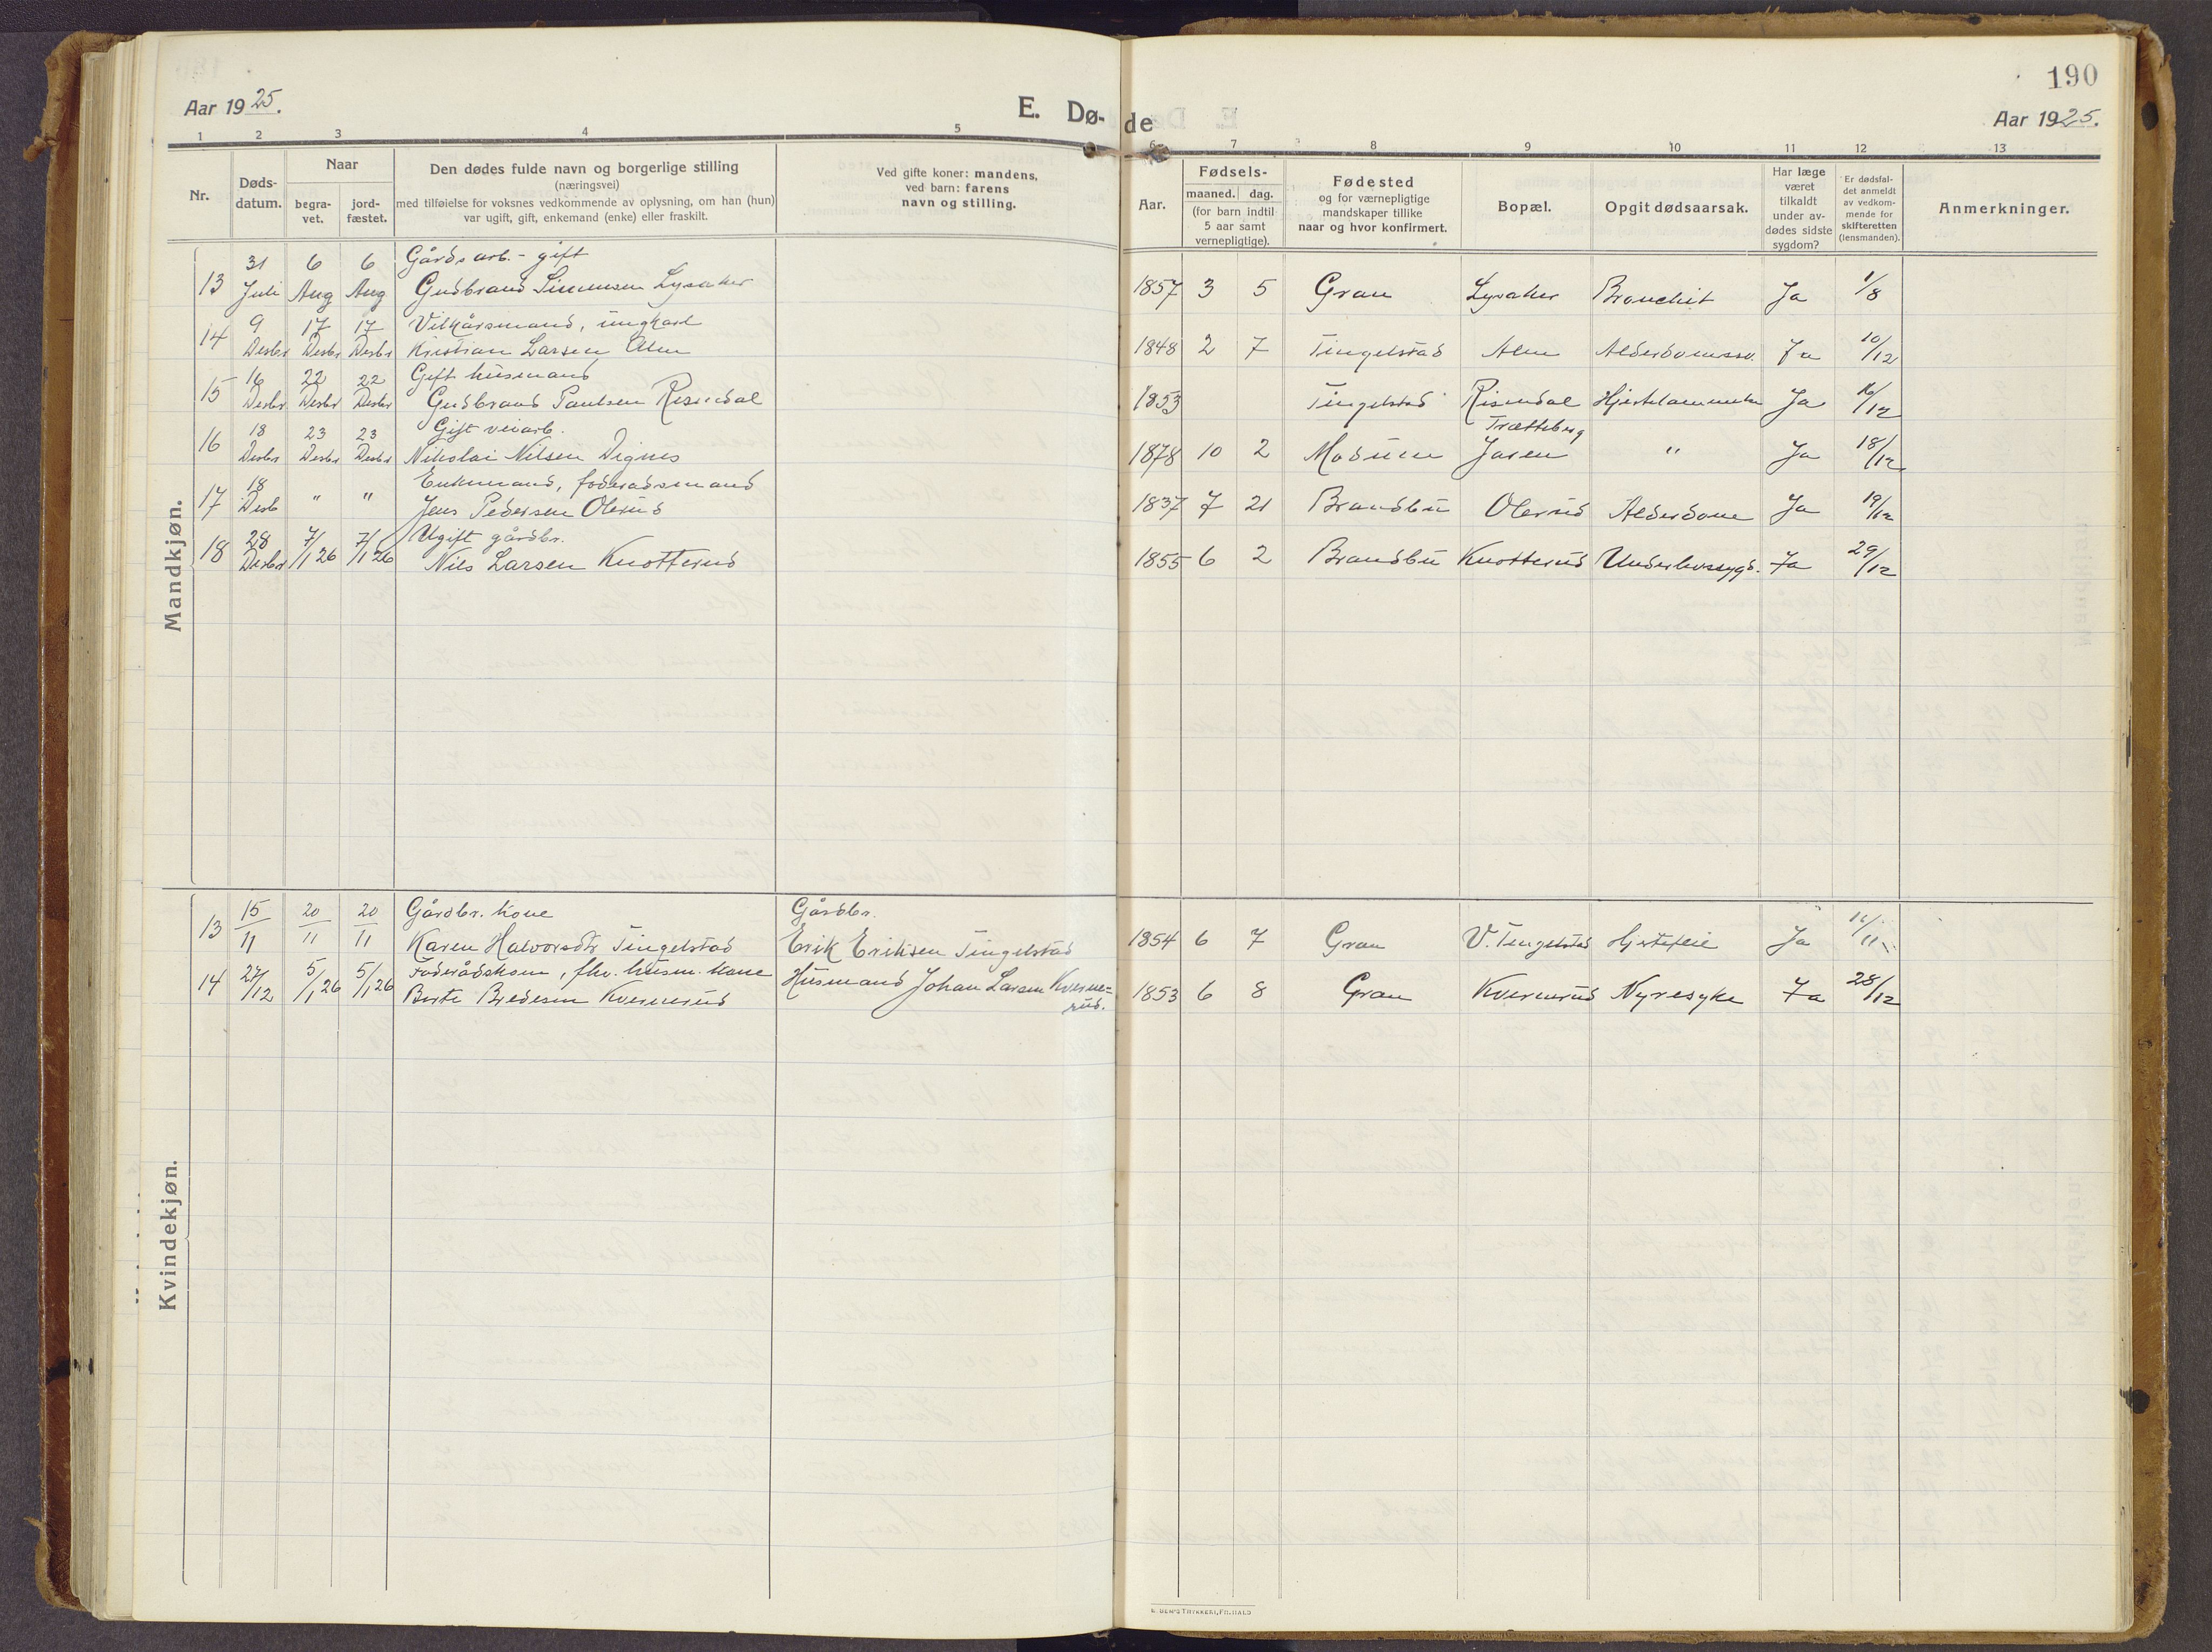 190
Aar 1925.
E. Dø-
de
Aar 1925.
1 2 3 4 5 6 7 8 9 10 11 12 13
Nr.
Døds-
datum.
Naar
begra-
vet.
jord-
fæstet.
Den dødes fulde navn og borgerlige stilling
(næringsvei)
med tilføielse for voksnes vedkommende av oplysning, om han (hun)
var ugift, gift, enkemand (enke) eller fraskilt.
Ved gifte koner: mandens,
ved barn: farens
navn og stilling.
Aar.
Fødsels-
maaned. dag.
(for barn indtil
5 aar samt
vernepligtige).
Fødested
og for værnepligtige
mandskaper tillike
naar og hvor konfirmert.
Bopæl.
Opgit dødsaarsak.
Har læge
været
tilkaldt
under av-
dødes sidste
sygdom?
Er dødsfal-
det anmeldt
av vedkom-
mende for
skifteretten
(lensmanden).
Anmerkninger.
Mandkjøn.
31 6 6 Gårdsarb. - gift
13 Juli Aug Aug Gudbrand Simensen Lysaker 1857 3 5 Gran Lysaker Bronchit Ja 1/8
9 17 17 Vilkårsmand, ungkarl
14 Desbr Desbr Desbr Kristian Larsen Alm 1848 2 7 Tingelstad Alm Ja 10/12
16 22 22 Gift husmand
15 Desbr Desbr Desbr Gudbrand Paulsen Risendal 1853 Tingelstad Risendal Hjertelammelse Ja 16/12
18 23 23 Gift veiarb. Trætteberg
16 Desbr Desbr Desbr Nikolai Nilsen Dignes 1878 10 2 Modum Jaren " Ja 18/12
18 Enkemand, føderådsmand
17 Desb " " Jens Pedersen Olerud 1837 7 21 Brandbu Olerud Alderdom Ja 19/12
28 7/1 26 7/1 26 Ugift gårdbr.
18 Desbr Nils Larsen Knotterud 1855 6 2 Brandbu Knotterud Underlivssygd. Ja 29/12
Kvindekjøn.
13 15/11 20/11 20/11 Gårdbr. kone Gårdbr.
Karen Halvorsdtr Tingelstad Erik Eriksen Tingelstad 1854 6 7 Gran V. Tingelstad Hjertefeil Ja
14 27/12 5/1 26 5/1 26 Føderådskone, fhv. husm. kone Husmand Johan Larsen Kverne-
Berte Bredesen Kvernerud rud. 1853 6 8 Gran Kvernerud Nyresyke Ja 28/12